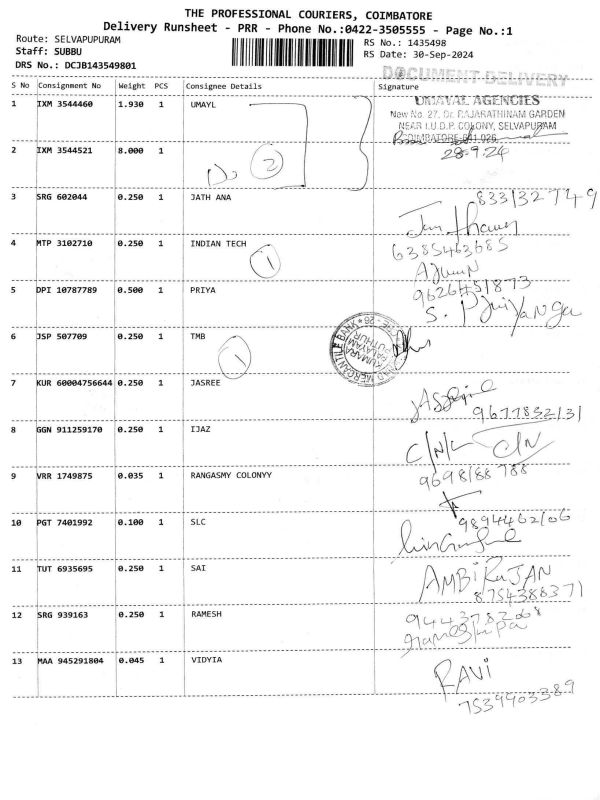 THE PROFESSIONAL COURIERS, COIMBATORE
Delivery Runsheet - PRR - Phone No.:0422-3505555 - Page No.:1
Route: SELVAPUPURAM
Staff: SUBBU
DRS No.: DCJB143549801
RS No.: 1435498
RS Date: 30-Sep-2024
DOCUMENT DELIVERY
S No Consignment No Weight PCS Consignee Details Signature
1 IXM 3544460 1.930 1 UMAYL
UMAYAL AGENCIES
New No. 27, Dr. RAJARATHINAM GARDEN
NEAR I.U.D.P. COLONY, SELVAPURAM
COIMBATORE-641 026
2 IXM 3544521 8.000 1
2
28-9-24
3 SRG 602044 0.250 1 JATH ANA
833132749
4 MTP 3102710 0.250 1 INDIAN TECH
1
6385463685
5 DPI 10787789 0.500 1 PRIYA
9626451873
S. Priyanga
6 JSP 507709 0.250 1 TMB
1
7 KUR 60004756644 0.250 1 JASREE
9677832131
8 GGN 911259170 0.250 1 IJAZ
C/N/L C/N
9698188788
9 VRR 1749875 0.035 1 RANGASMY COLONYY
10 PGT 7401992 0.100 1 SLC
9894462106
11 TUT 6935695 0.250 1 SAI
AMBiRaJAN
8754388371
12 SRG 939163 0.250 1 RAMESH
13 MAA 945291804 0.045 1 VIDYIA
RAVI
7539903389